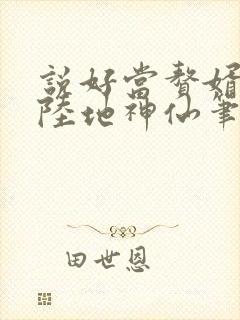 說好當贅婿
陸地神仙筆
田世恩